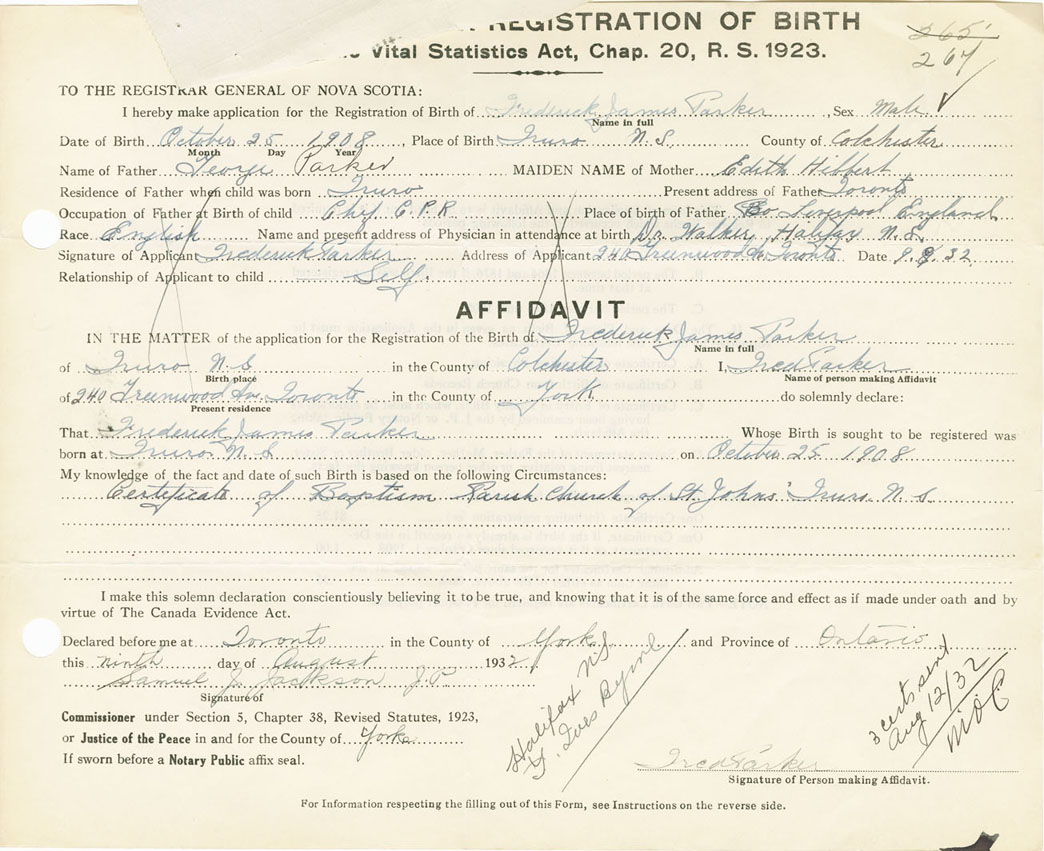 REGISTRATION OF BIRTH
Vital Statistics Act, Chap. 20, R. S. 1923.
265
267
TO THE REGISTRAR GENERAL OF NOVA SCOTIA:
I hereby make application for the Registration of Birth of Frederick James Parker, Sex Male
Name in full
Date of Birth October 25 1908, Place of Birth Truro N.S. County of Colchester
Month Day Year
Name of Father George Parker MAIDEN NAME of Mother Edith Hibbert
Residence of Father when child was born Truro Present address of Father Toronto
Occupation of Father at Birth of child Chef C.P.R Place of birth of Father Liverpool England
Race English Name and present address of Physician in attendance at birth Dr. Walker, Halifax N.S.
Signature of Applicant Frederick Parker Address of Applicant 240 Greenwood Av Toronto Date 9.8.32
Relationship of Applicant to child Self.
AFFIDAVIT
IN THE MATTER of the application for the Registration of the Birth of Frederick James Parker
Name in full
of Truro N.S in the County of Colchester I, Fred Parker
Birth place Name of person making Affidavit
of 240 Greenwood Av. Toronto in the County of York do solemnly declare:
Present residence
That Frederick James Parker Whose Birth is sought to be registered was
born at Truro N.S on October 25 1908
My knowledge of the fact and date of such Birth is based on the following Circumstances:
Certificate of Baptism Parish Church of St. Johns Truro N.S.
I make this solemn declaration conscientiously believing it to be true, and knowing that it is of the same force and effect as if made under oath and by
virtue of The Canada Evidence Act.
Declared before me at Toronto in the County of York and Province of Ontario
this ninth day of August 1932
Samuel J. Jackson J.P.
Signature of
Commissioner under Section 5, Chapter 38, Revised Statutes, 1923,
or Justice of the Peace in and for the County of York
If sworn before a Notary Public affix seal.
Halifax N.S.
3 certs sent
Aug 12/32
Fred Parker
Signature of Person making Affidavit.
For Information respecting the filling out of this Form, see Instructions on the reverse side.